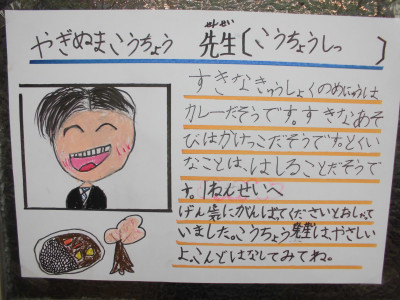 やぎぬまこうちょう 先生〔こうちょうしつ 〕
せんせい
すきなきゅうしょくのめにゅうは
カレーだそうです。すきなあそ
びはかけっこだそうです。とくい
なことは、はしることだそうで
す。1ねんせいへ
げん気にがんばてくださいとおしゃって
いました。こうちょう先生は、やさしい
よ、こんどはなしてみてね。